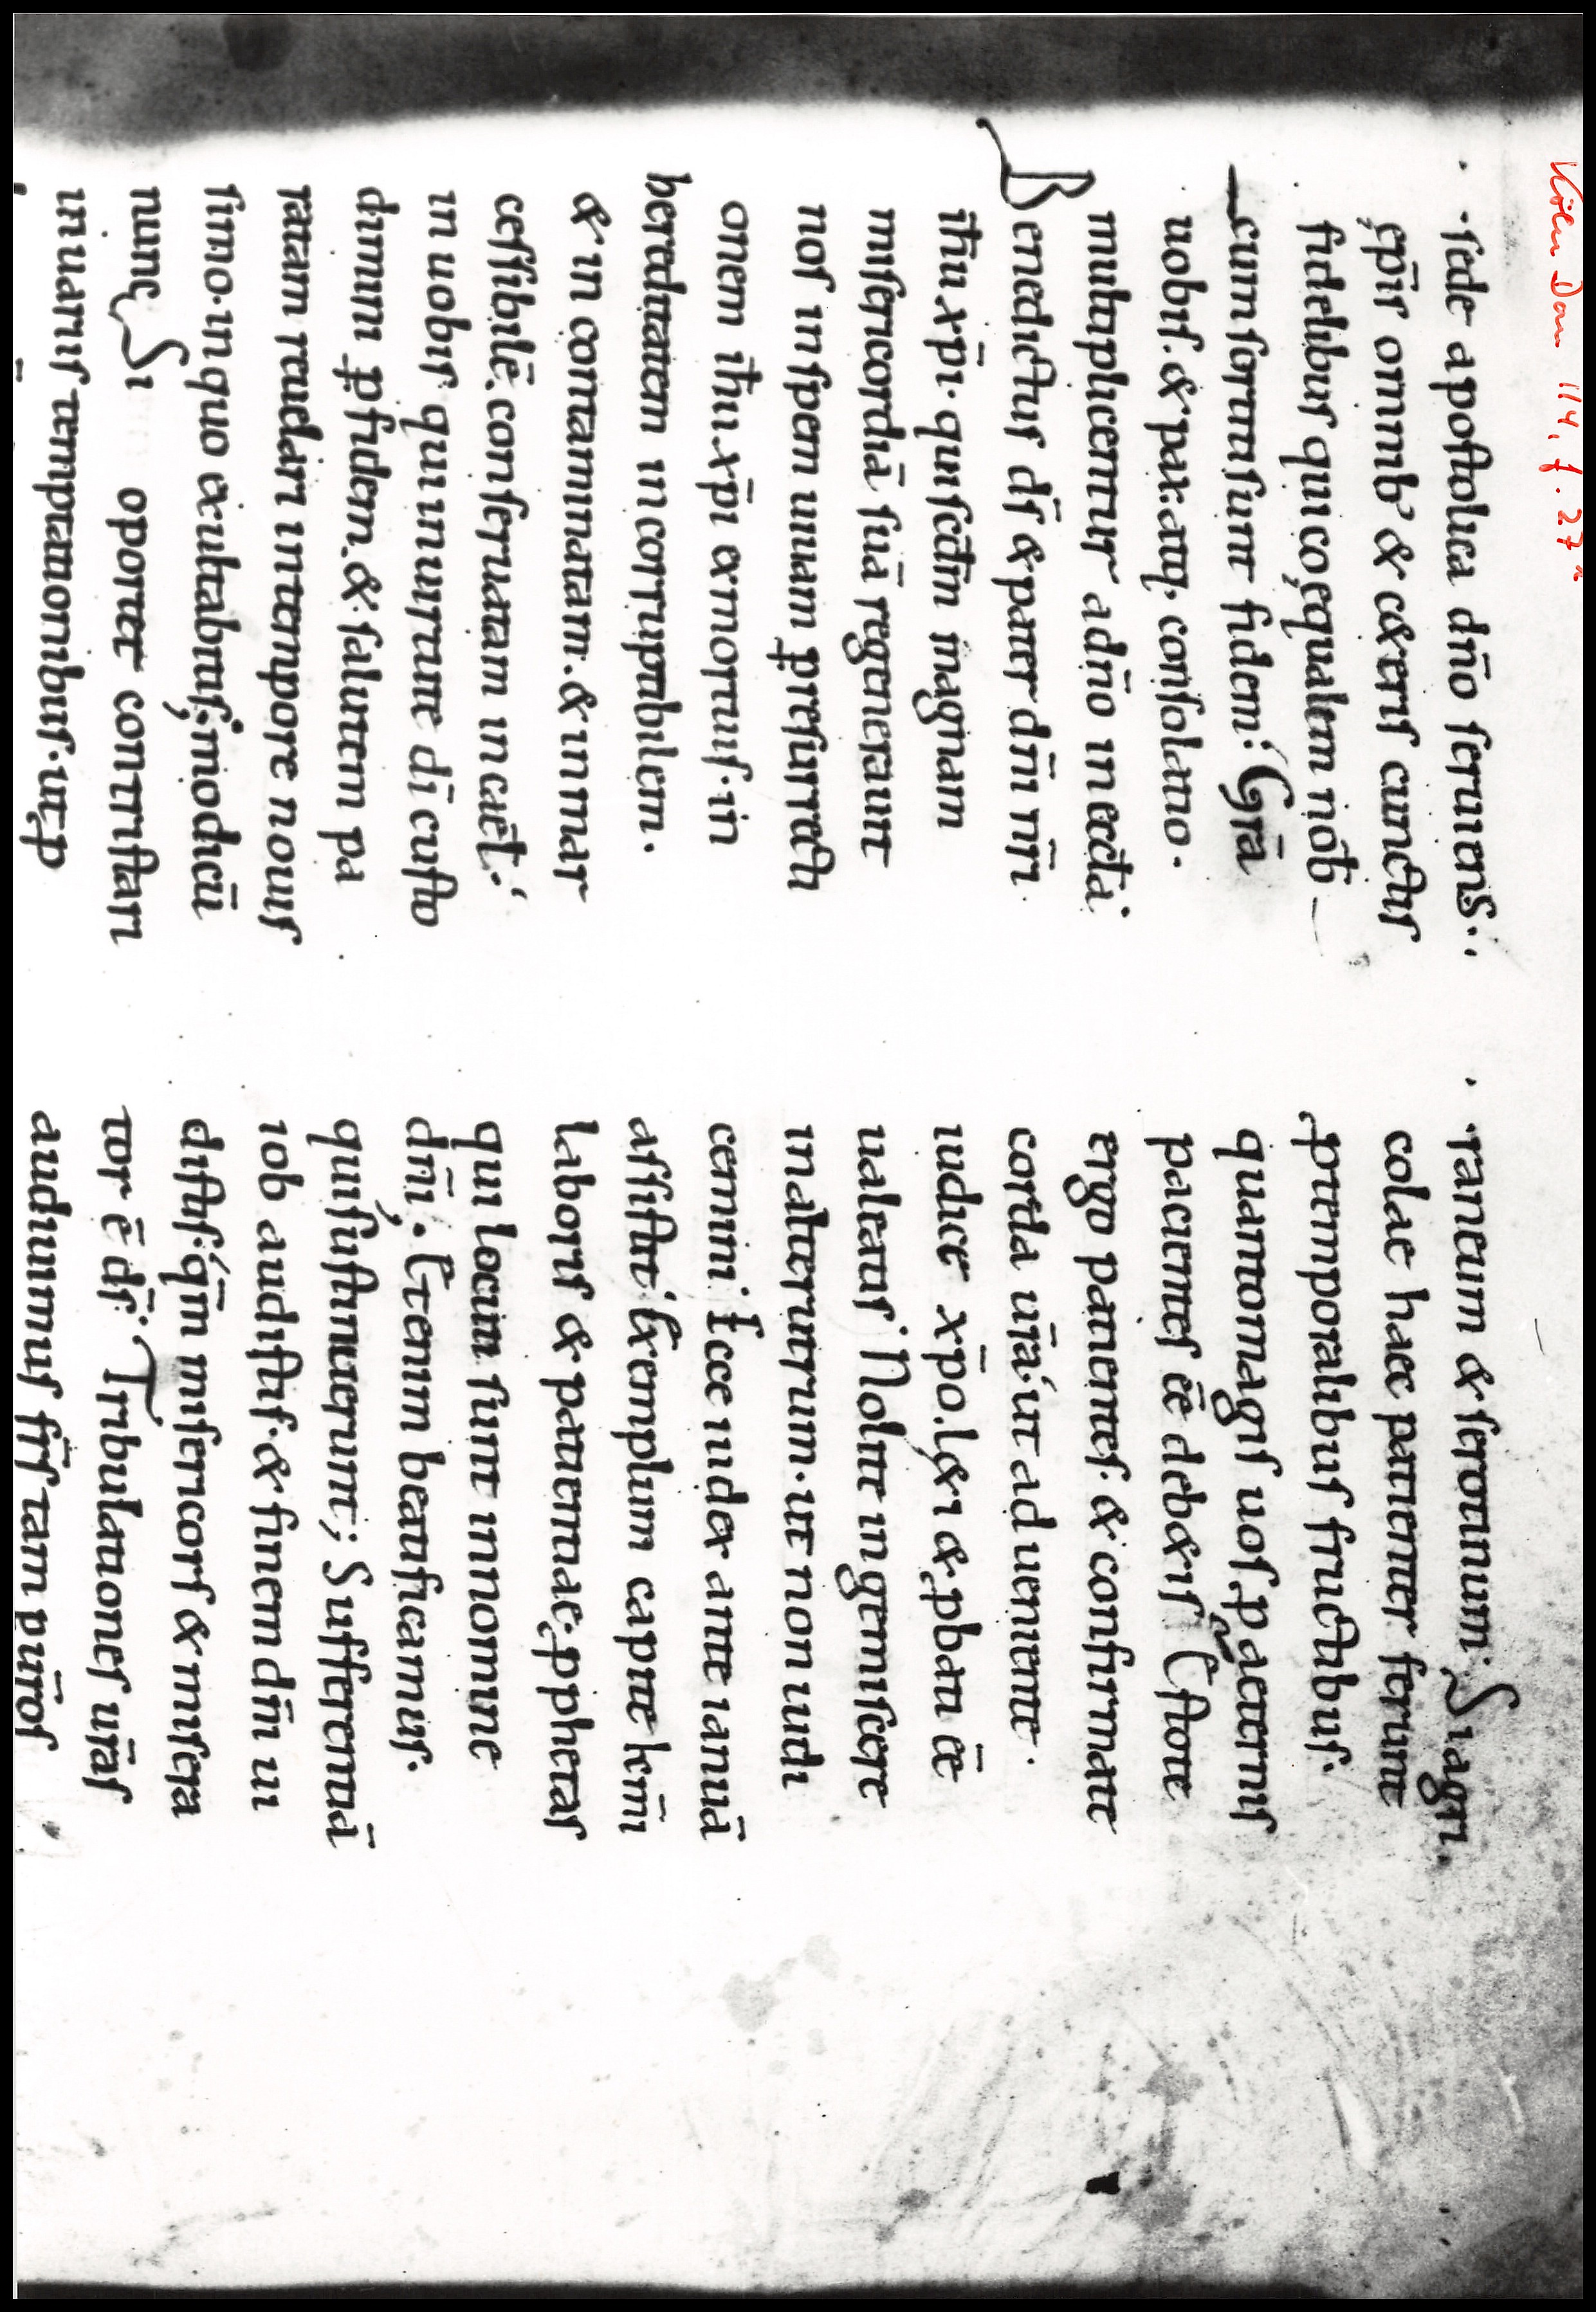 Köln Dom 114, f. 27ᵃ
· sede apostolica dn̄o seruiens·,
ep̄is omnib’ & ceteris cunctis
fidelibus qui coęqualem nob̄
cum sortiti sunt fidem: Gr̄a
uobis·&pax·atq; consolatio·
multiplicentur adn̄o in ęccl̄ia·
Benedictus d̄s &pater dn̄i nr̄i
ih̄u xp̄i· quisecdm̄ magnam
misericordiā suā regenerauit
nos inspem uiuam p̱ resurrecti
onem ih̄u xp̄i exmortuis·in
hereditatem incorruptibilem·
&incontaminatam·&inmar
cessibilē· conseruatam incael̄·
in uobis qui inuirtute d̄i custo
dimini p̱fidem·&salutem pa
ratam reuelari intempore nouis
simo·inquo exultabitis; modicū
nunc Si oportet contristari
inuariis temptationibus·ut,p
· raneum &serotinum· Siagri
colae haec patienter ferunt
,ptemporalibus fructibus·
quantomagis uos p̱ aeternis
pacientes eē debetis Estote
ergo patientes·&confirmate
corda ur̄a·ut ad uenientē·
iudice xp̄o·leti &,pbati eē
ualeatis Nolite ingemiscere
inalterutrum·ut non iudi
cemini· Ecce iudex ante ianuā
assistit· Exemplum capite km̄i
laboris & patientiae·,pphetas
qui locuti sunt innomine
dn̄i· Etenim beatificamus·
quisustinuerunt; Sufferentiā
iob audistis·&finem dn̄i ui
distis·qm̄ misericors &misera
tor ē d̄s· Tribulationes ur̄as
audiuimus fr̄s tam pur̄os